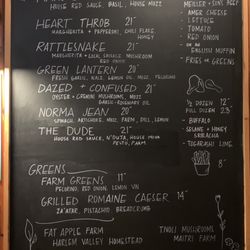 HOUSE RED SAUCE, BASIL, HOUSE MOZZ
HEART THROB 21"
MARGHERITA + PEPPERONI, CHILI FLAKE, HONEY
RATTLESNAKE 21"
MARGHERITA + SAUSAGE, MUSHROOM
RED ONION
GREEN LANTERN 20"
FRESH GARLIC, KALE, LEMON OIL, MOZZ, PECORINO
DAZED + CONFUSED 21"
OYSTER + CREMINI MUSHROOMS, MOZZ
GARLIC-ROSEMARY OIL
NORMA JEAN 20"
SPINACH, ARTICHOKE, MOZZ, PARM, DILL, LEMON
THE DUDE 21"
HOUSE RED SAUCE, N'DUJA, HOUSE MOZZ
PESTO, PARM
GREENS
FARM GREENS 11"
PECORINO, RED ONION, LEMON VIN
GRILLED ROMAINE CAESER 14"
ZA'ATAR, PISTACHIO BREADCRUMB
FAT APPLE FARM
HARLEM VALLEY HOMESTEAD
- AMER CHEESE
- LETTUCE
- TOMATO
- RED ONION
- ON AN
ENGLISH MUFFIN
FRIES OR GREENS
1/2 DOZEN 12"
FULL DOZEN 23"
- BUFFALO
- SESAME + HONEY
SRIRACHA
- TOGARASHI LIME
8"
TIVOLI MUSHROOMS
MAITRI FARM